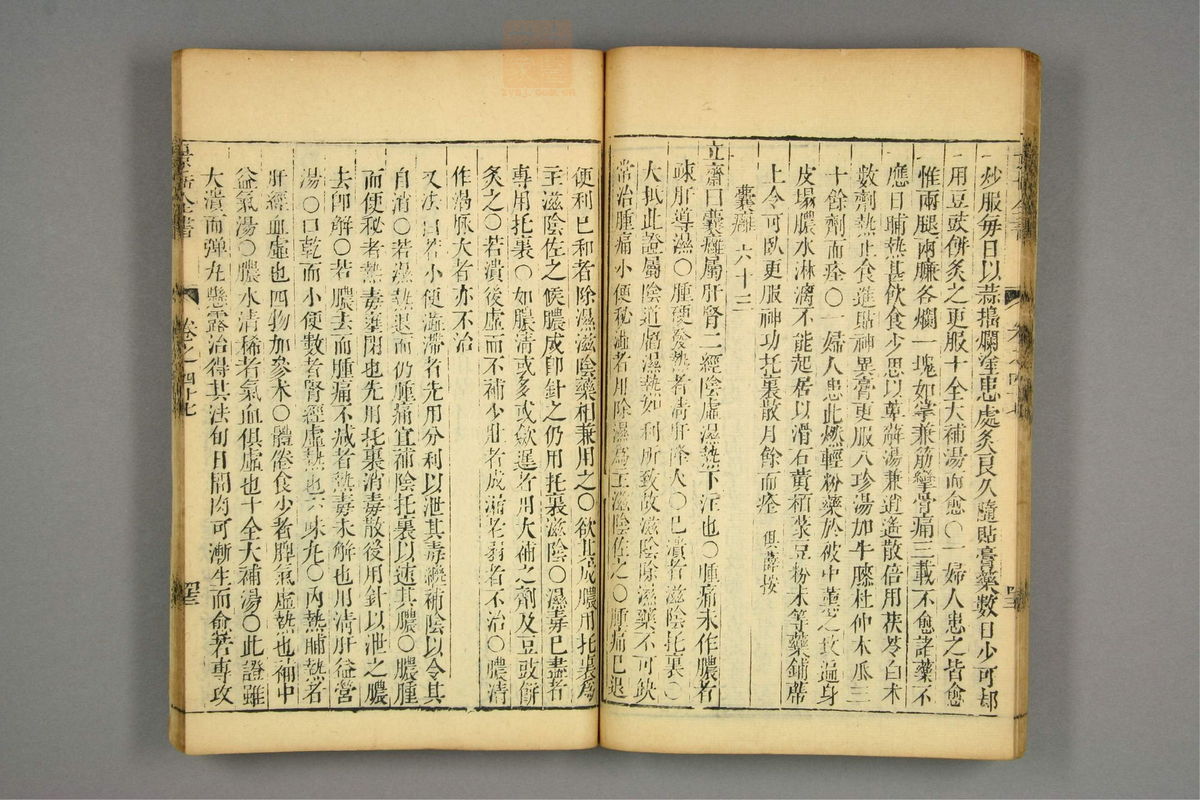 炒服每日以蒜搗爛塗患處灸良久隨貼膏藥數日少可却
用豆豉餅灸之更服十全大補湯而愈〇一婦人患之皆愈
惟兩腿兩臁各爛一塊如掌兼筋攣骨痛三載不愈諸藥不
應日晡熱甚飲食少思以萆薢湯兼逍遙散倍用茯苓白朮
數劑熱止食進貼神異膏更服八珍湯加牛膝杜仲木瓜三
十餘劑而痊〇一婦人患此燃輕粉藥於被中熏之致遍身
皮塌膿水淋漓不能起居以滑石黃栢菉豆粉末等藥鋪蓆
上令可臥更服神功托裏散月餘而痊 俱薛按
囊癰 六十三
立齋曰囊癰屬肝腎二經陰虛濕熱下注也〇腫痛未作膿者
疎肝導濕〇腫硬發熱者清肝降火〇已潰者滋陰托裏〇
大抵此證屬陰道膤濕熱如利所致故滋陰除濕藥不可缺
常治腫痛小便秘澁者用除濕爲主滋陰佐之〇腫痛已退
便利已和者除濕滋陰藥相兼用之〇欲其成膿用托裏爲
主滋陰佐之候膿成即針之仍用托裏滋陰〇濕毒已盡者
專用托裏〇如膿清或多或歛遲者用大補之劑及豆豉餅
灸之〇若潰後虛而不補少壯者成漏老弱者不治〇膿清
作渴脉大者亦不治
又法曰若小便澁滯者先用分利以泄其毒繼補陰以令其
自消〇若濕熱退而仍腫痛宜補陰托裏以速其膿〇膿腫
而便秘者熱毒壅閉也先用托裏消毒散後用針以泄之膿
去即解〇若膿去而腫痛不減者熱毒未解也用清肝益營
湯〇口乾而小便數者腎經虛熱也六味丸〇內熱晡熱者
肝經血虛也四物加參朮〇體倦食少者脾氣虛熱也補中
益氣湯〇膿水清稀者氣血俱虛也十全大補湯〇此證雖
大潰而彈丸懸露治得其法旬日間肉可漸生而愈若專攻
景岳全書
卷之四十七